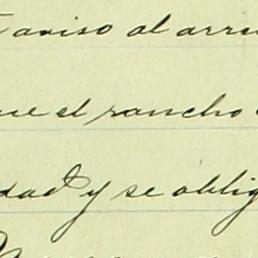 aviso al arre
ue el rancho
dad y se oblig